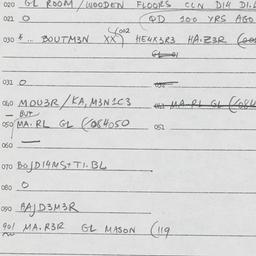 020 GL ROOM / WOODEN FLOORS CLN DI4 DI.L
021 O (QD 100 YRS AGO
030 * ... BOUTM3N XX(002 HE4X3R3 HA.Z3R (001
GL 01
031 O
040 MOU3R/KA,M3N1C3 041 MA.RL GL (084
— BUT
050 MA.RL GL (084050 051
060 —
070 BOJDI4MS+TI.BL
080 O
090 BAJD3M3R
901 MA.R3R GL MASON (119